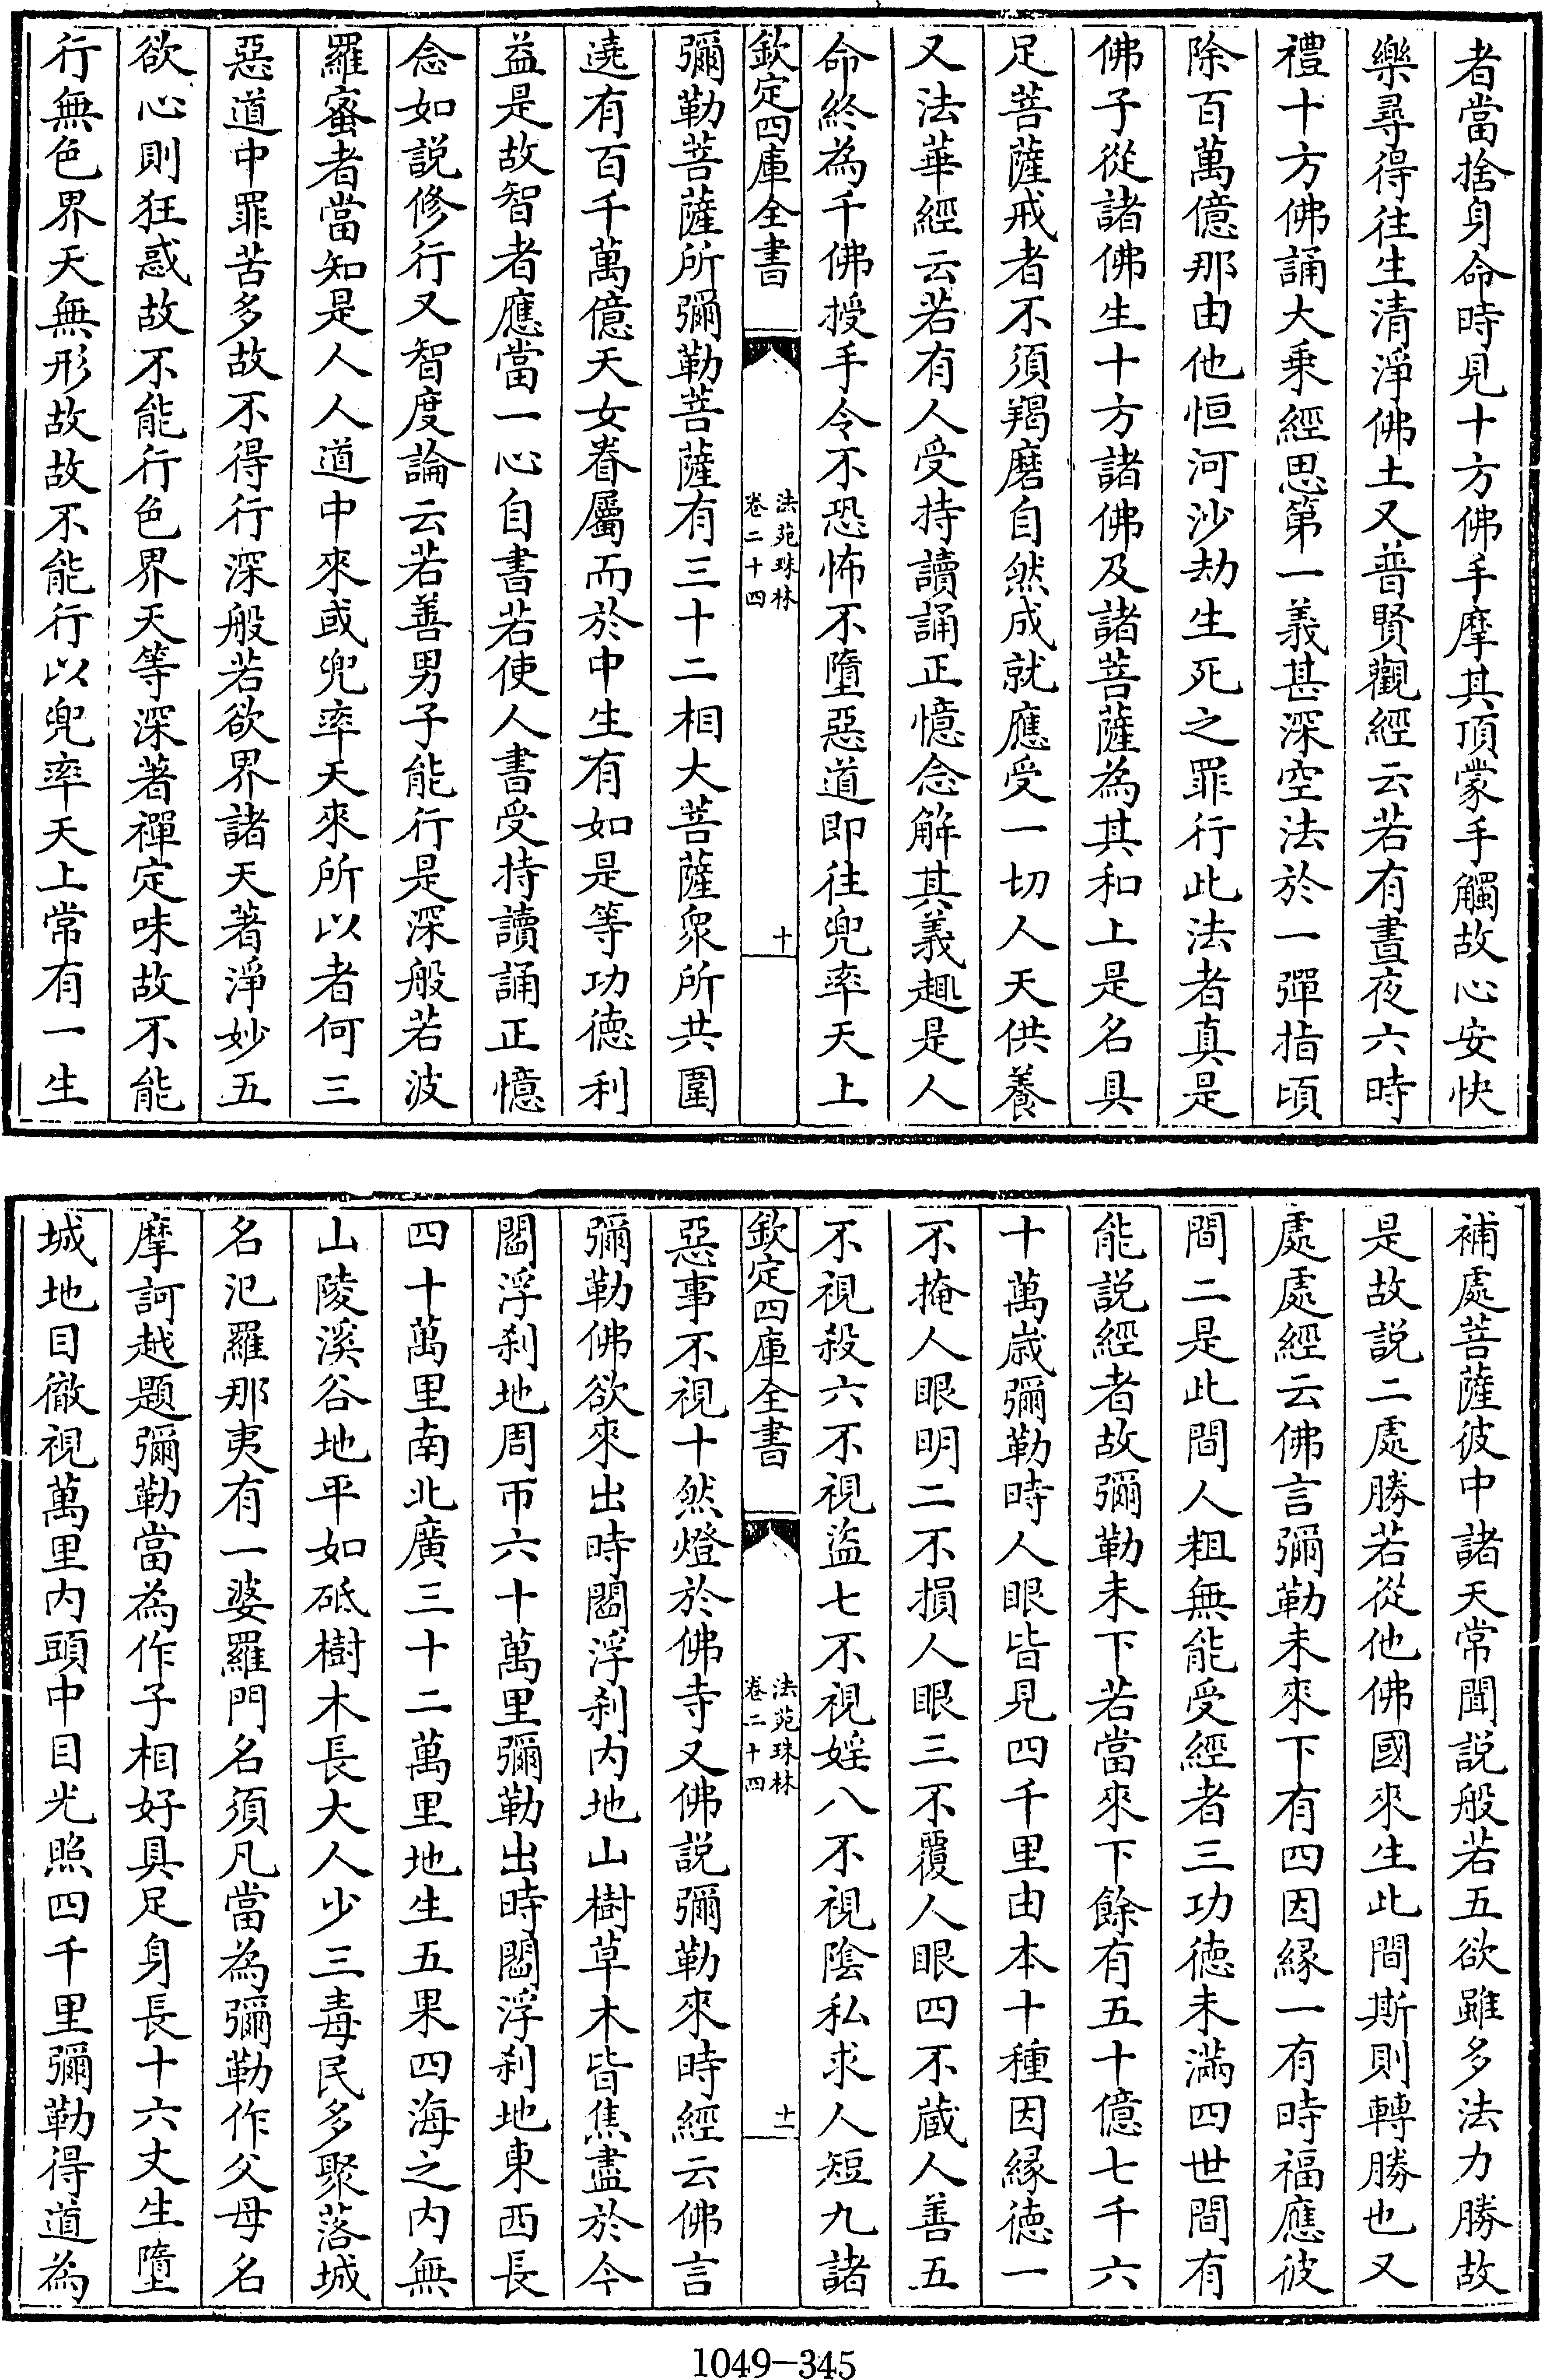 者當捨身命時見十方佛手摩其頂蒙手觸故心安快
樂尋得往生清淨佛土又普賢觀經云若有晝夜六時
禮十方佛誦大乗經思第一義甚深空法於一彈指頃
除百萬億那由他恒河沙劫生死之罪行此法者真是
佛子從諸佛生十方諸佛及諸菩薩為其和上是名具
足菩薩戒者不須羯磨自然成就應受一切人天供養
又法華經云若有人受持讀誦正憶念解其義趣是人
命終為千佛授手令不恐怖不墮惡道即往兜率天上
欽定四庫全書
法苑珠林
卷二十四
十
彌勒菩薩所彌勒菩薩有三十二相大菩薩衆所共圍
遶有百千萬億天女眷屬而於中生有如是等功徳利
益是故智者應當一心自書若使人書受持讀誦正憶
念如説修行又智度論云若善男子能行是深般若波
羅蜜者當知是人人道中來或兜率天來所以者何三
惡道中罪苦多故不得行深般若欲界諸天著淨妙五
欲心則狂惑故不能行色界天等深著禪定味故不能
行無色界天無形故故不能行以兜率天上常有一生
補處菩薩彼中諸天常聞説般若五欲雖多法力勝故
是故説二處勝若從他佛國來生此間斯則轉勝也又
處處經云佛言彌勒未來下有四因縁一有時福應彼
間二是此間人粗無能受經者三功徳未滿四世間有
能説經者故彌勒未下若當來下餘有五十億七千六
十萬歳彌勒時人眼皆見四千里由本十種因縁徳一
不掩人眼明二不損人眼三不覆人眼四不蔵人善五
不視殺六不視盜七不視婬八不視陰私求人短九諸
欽定四庫全書
法苑珠林
卷二十四
十一
惡事不視十然燈於佛寺又佛説彌勒來時經云佛言
彌勒佛欲來出時閻浮刹内地山樹草木皆焦盡於今
閻浮刹地周帀六十萬里彌勒出時閻浮刹地東西長
四十萬里南北廣三十二萬里地生五果四海之内無
山陵溪谷地平如砥樹木長大人少三毒民多聚落城
名汜羅那夷有一婆羅門名須凡當為彌勒作父母名
摩訶越題彌勒當為作子相好具足身長十六丈生墮
城地目徹視萬里内頭中日光照四千里彌勒得道為
1049-345